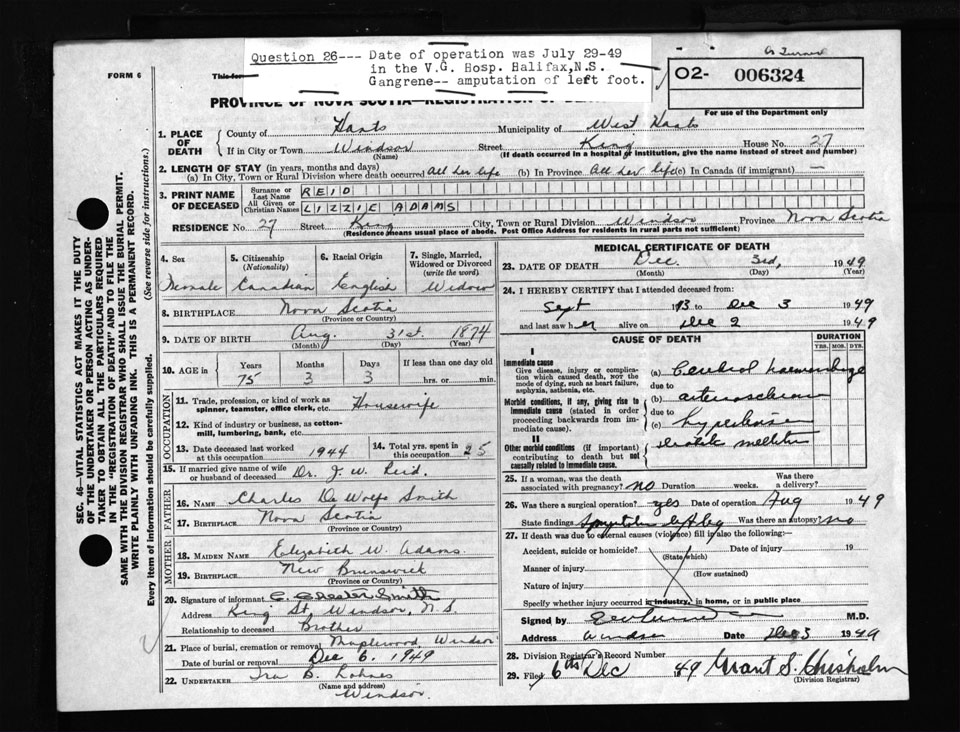 Question 26--- Date of operation was July 29-49
in the V.G. Hosp. Halifax,N.S.
Gangrene-- amputation of left foot.
FORM 6
This for
O2- 006324
For use of the Department only
PROVINCE OF NOVA SCOTIA—REGISTRATION OF DEA
1. PLACE OF DEATH
County of Hants Municipality of West Hants
If in City or Town Windsor Street King House No. 27
(Name) (If death occurred in a hospital or institution, give the name instead of street and number)
2. LENGTH OF STAY (in years, months and days)
(a) In City, Town or Rural Division where death occurred All her life (b) In Province All her life (c) In Canada (if immigrant) —
3. PRINT NAME OF DECEASED
Surname or Last Name REID
All Given or Christian Names LIZZIE ADAMS
RESIDENCE No. 27 Street King City, Town or Rural Division Windsor Province Nova Scotia
(Residence means usual place of abode. Post Office Address for residents in rural parts not sufficient)
4. Sex 5. Citizenship (Nationality) 6. Racial Origin 7. Single, Married, Widowed or Divorced (write the word)
Female Canadian English Widow
8. BIRTHPLACE Nova Scotia
(Province or Country)
9. DATE OF BIRTH Aug. 31st. 1874
(Month) (Day) (Year)
10. AGE in Years Months Days If less than one day old
75 3 3 hrs. or min.
OCCUPATION
11. Trade, profession, or kind of work as spinner, teamster, office clerk, etc. Housewife
12. Kind of industry or business, as cotton-mill, lumbering, bank, etc.
13. Date deceased last worked at this occupation 1944 14. Total yrs. spent in this occupation 25
15. If married give name of wife or husband of deceased Dr. J. W. Reid.
FATHER
16. NAME Charles De Wolfe Smith
17. BIRTHPLACE Nova Scotia
(Province or Country)
MOTHER
18. MAIDEN NAME Elizabeth W. Adams.
19. BIRTHPLACE New Brunswick
(Province or Country)
20. Signature of informant C. Chester Smith
Address King St, Windsor, N.S.
Relationship to deceased Brother
21. Place of burial, cremation or removal Maplewood Windsor
Date of burial or removal Dec 6. 1949
22. UNDERTAKER Ira B. Lohnes
(Name and address)
Windsor.
MEDICAL CERTIFICATE OF DEATH
23. DATE OF DEATH Dec. 3rd, 1949
(Month) (Day) (Year)
24. I HEREBY CERTIFY that I attended deceased from:
Sept 1913 to Dec 3 1949
and last saw her alive on Dec 2 1949
CAUSE OF DEATH DURATION
YRS. MOS. DYS.
I
Immediate cause
Give disease, injury or complication which caused death, not the mode of dying, such as heart failure, asphyxia, asthenia, etc.
(a) Cerebral haemorrhage
due to
Morbid conditions, if any, giving rise to immediate cause (stated in order proceeding backwards from immediate cause).
(b) arteriosclerosis
due to
(c) hypertension
II
Other morbid conditions (if important) contributing to death but not causally related to immediate cause.
Diabetic mellitus
25. If a woman, was the death associated with pregnancy? no Duration weeks. Was there a delivery?
26. Was there a surgical operation? yes Date of operation Aug 1949
State findings left leg Was there an autopsy? no
27. If death was due to external causes (violence) fill in also the following:
Accident, suicide or homicide? Date of injury 19
(State which)
Manner of injury
(How sustained)
Nature of injury
Specify whether injury occurred in industry, in home, or in public place
Signed by M.D.
Address Windsor Date Dec 3 1949
28. Division Registrar's Record Number
29. Filed 6th Dec 49 Grant S. Chisholm
(Division Registrar)
SEC. 46—VITAL STATISTICS ACT MAKES IT THE DUTY
OF THE UNDERTAKER OR PERSON ACTING AS UNDER-
TAKER TO OBTAIN ALL THE PARTICULARS REQUIRED
IN THE "REGISTRATION OF DEATH" AND TO FILE THE
SAME WITH THE DIVISION REGISTRAR WHO SHALL ISSUE THE BURIAL PERMIT.
WRITE PLAINLY WITH UNFADING INK. THIS IS A PERMANENT RECORD.
Every item of information should be carefully supplied. (See reverse side for instructions.)